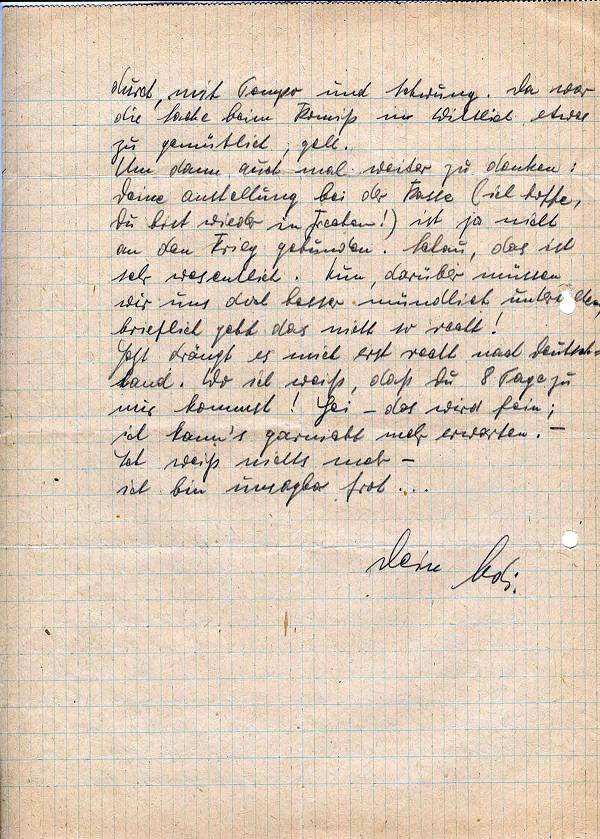 durch, mit Tempo und Schwung. Da war
die Sache beim Komiß in Wittlich etwas
zu gemütlich, gell.
Um dann auch mal weiter zu denken:
Deine Anstellung bei der Kasse (ich hoffe,
Du bist wieder in Frieden!) ist ja nicht
an den Krieg gebunden. Schau, das ist
sehr wesentlich. Nun, darüber müssen
wir uns doch besser mündlich
brieflich geht das nicht so recht!
Jetzt drängt es mich erst recht nach Deutsch-
land. Wo ich weiß, daß Du 8 Tage zu
mir kommst! Hei - das wird fein;
ich kann's garnicht mehr erwarten. -
Ich weiß nichts mehr -
ich bin unsagbar froh...
Deine